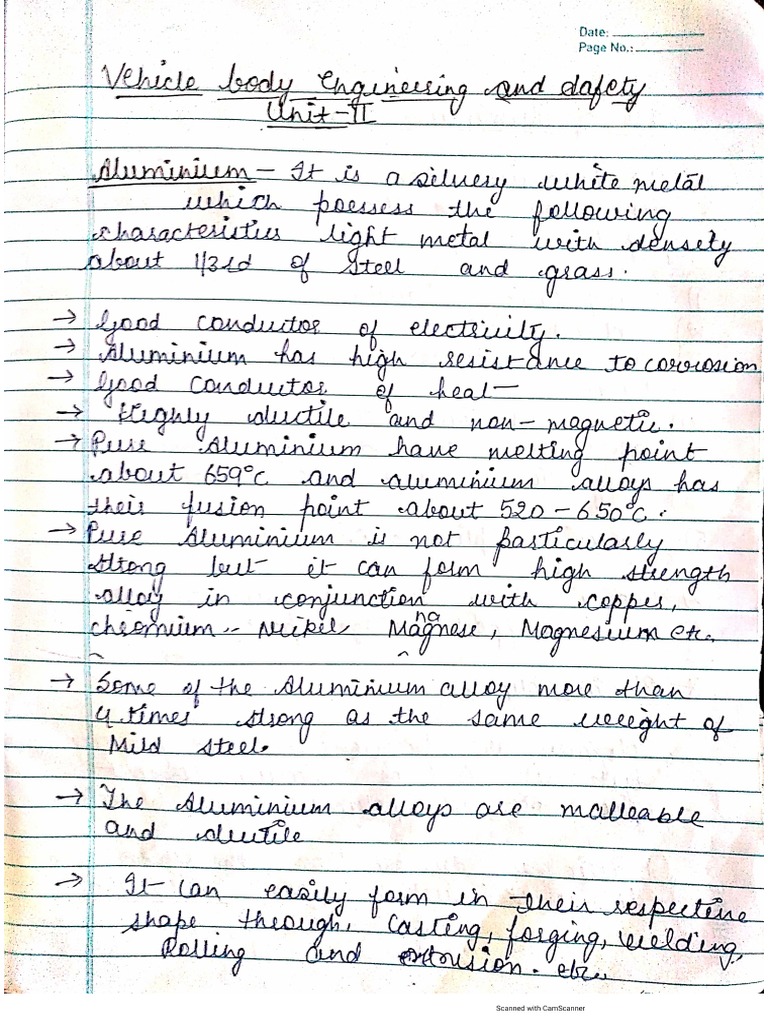 Date:
Page No.:
Vehicle body Engineering and safety
Unit-II
Aluminium - It is a silvery white metal
which possess the following
characteristics light metal with density
about 1/3rd of steel and grass.
→ Good conductor of electricity.
→ Aluminium has high resistance to corrosion
→ Good conductor of heat
→ Highly ductile and non-magnetic.
→ Pure Aluminium have melting point
about 659°C and aluminium alloys has
their fusion point about 520-650°C.
→ Pure Aluminium is not particularly
strong but it can form high strength
alloy in conjunction with copper,
chromium, Nickel, Magnanese, Magnesium etc.
→ Some of the Aluminium alloy more than
4 times strong as the same weight of
Mild steel.
→ The Aluminium alloys are malleable
and ductile
→ It can easily form in their respective
shape through, Casting, forging, welding,
Rolling and extrusion. etc.
Scanned with CamScanner